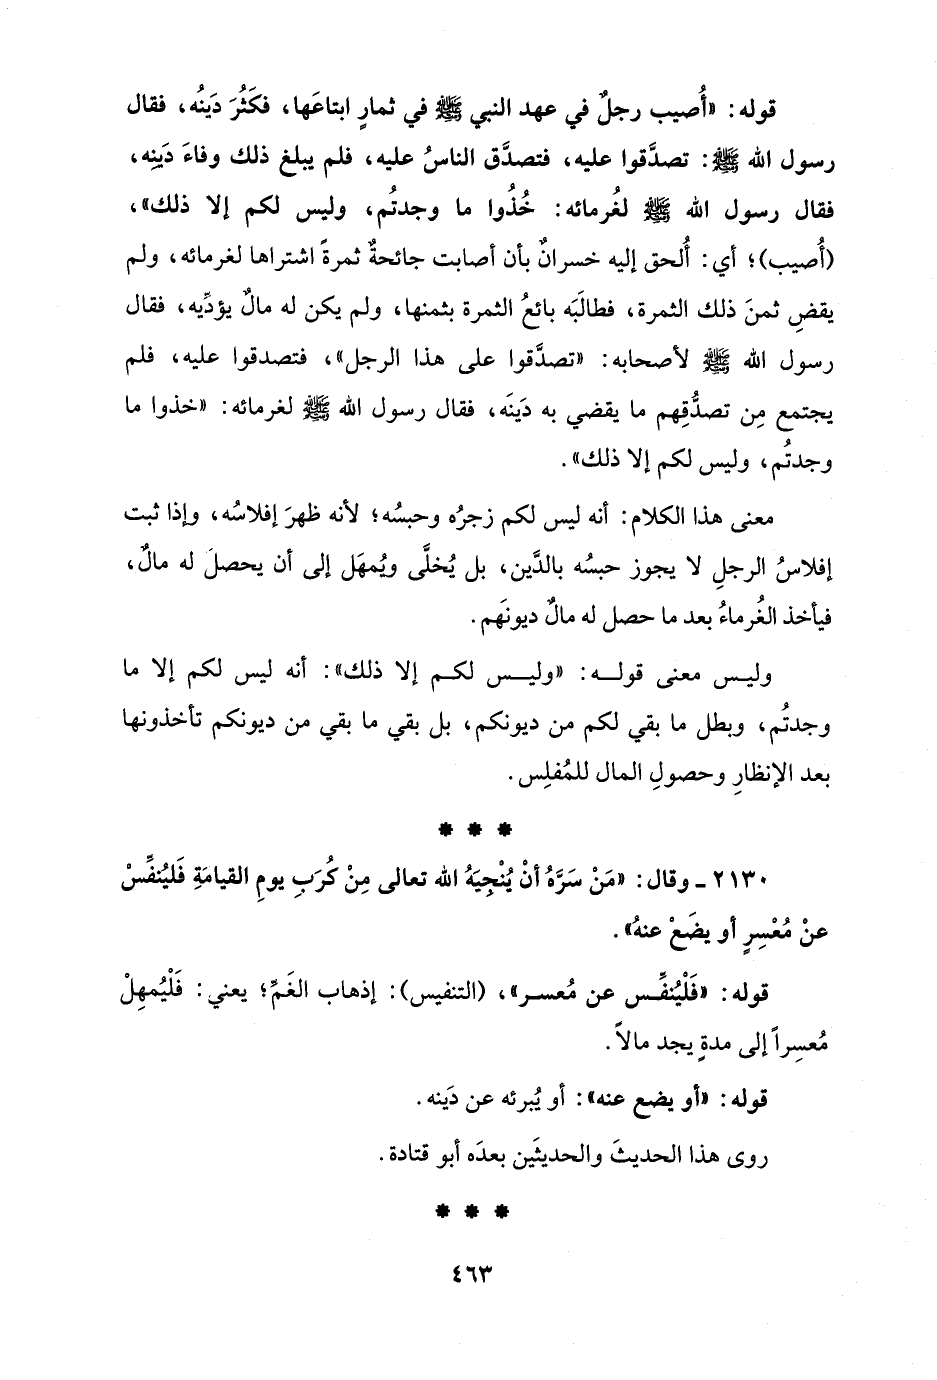 قوله: «أُصيب رجلٌ في عهد النبي ﷺ في ثمارٍ ابتاعَها، فكَثُرَ دَينُه، فقال
رسول الله ﷺ: تصدَّقوا عليه، فتصدَّق الناسُ عليه، فلم يبلغ ذلك وفاءَ دَينِه،
فقال رسول الله ﷺ لغُرمائه: خُذُوا ما وجدتُم، وليس لكم إلا ذلك»،
(أُصيب)؛ أي: أُلحق إليه خسرانٌ بأن أصابت جائحةٌ ثمرةً اشتراها لغرمائه، ولم
يقضِ ثمنَ ذلك الثمرة، فطالَبَه بائعُ الثمرة بثمنها، ولم يكن له مالٌ يؤدِّيه، فقال
رسول الله ﷺ لأصحابه: «تصدَّقوا على هذا الرجل»، فتصدقوا عليه، فلم
يجتمع مِن تصدُّقِهم ما يقضي به دَينَه، فقال رسول الله ﷺ لغرمائه: «خذوا ما
وجدتُم، وليس لكم إلا ذلك».
معنى هذا الكلام: أنه ليس لكم زجرُه وحبسُه؛ لأنه ظهرَ إفلاسُه، وإذا ثبت
إفلاسُ الرجلِ لا يجوز حبسُه بالدَّين، بل يُخلَّى ويُمهَل إلى أن يحصلَ له مالٌ،
فيأخذ الغُرماءُ بعد ما حصل له مالٌ ديونَهم.
وليس معنى قوله: «وليس لكم إلا ذلك»: أنه ليس لكم إلا ما
وجدتُم، وبطل ما بقي لكم من ديونكم، بل بقي ما بقي من ديونكم تأخذونها
بعد الإنظارِ وحصولِ المال للمُفلِس.
* * *
٢١٣٠ ـ وقال: «مَنْ سَرَّهُ أنْ يُنْجِيَهُ الله تعالى مِنْ كُرَبِ يومِ القيامَةِ فَليُنفِّسْ
عنْ مُعْسِرٍ أو يضَعْ عنهُ».
قوله: «فَلْيُنفِّس عن مُعسر»، (التنفيس): إذهاب الغَمِّ؛ يعني: فَلْيُمهِلْ
مُعسِراً إلى مدةٍ يجد مالاً.
قوله: «أو يضع عنه»: أو يُبرئه عن دَينه.
روى هذا الحديثَ والحديثَين بعدَه أبو قتادة.
* * *
٤٦٣